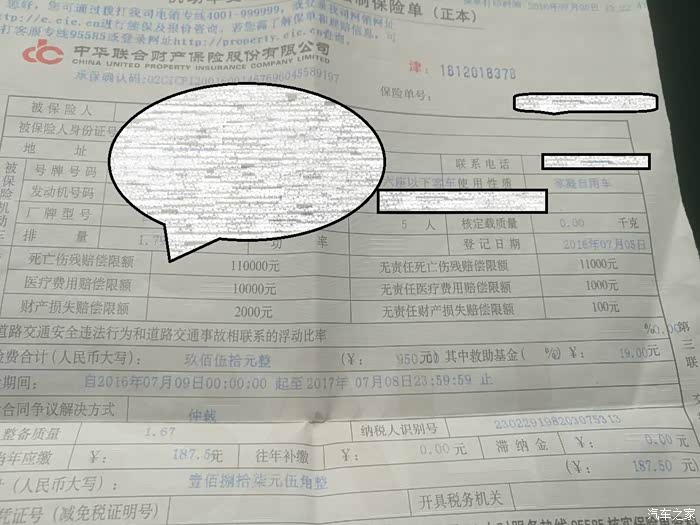 您好，您可通过拨打我司电销专线4001-999999，或登录我司网销网址
http://e.cic.cn进行续保及报价咨询。若您需了解保单和理赔信息，可
打客服专线95585或登录网址http://property.cic.cn查询。
制保险单（正本）
中华联合财产保险股份有限公司
CHINA UNITED PROPERTY INSURANCE COMPANY LIMITED
津： 1812018378
承保确认码：
保险单号：
被保险人
被保险人身份证号
地 址
联系电话
号牌号码
六座以下客车 使用性质 家庭自用车
发动机号码
厂牌型号
5 人 核定载质量 0.00 千克
排 量 功 率 登记日期 2016年07月05日
死亡伤残赔偿限额 110000元 无责任死亡伤残赔偿限额 11000元
医疗费用赔偿限额 10000元 无责任医疗费用赔偿限额 1000元
财产损失赔偿限额 2000元 无责任财产损失赔偿限额 100元
道路交通安全违法行为和道路交通事故相联系的浮动比率
险费合计（人民币大写）： 玖佰伍拾元整 （¥： 950元）其中救助基金（ %）¥： 19.00元
期间： 自2016年07月09日00:00:00 起至2017年 07月08日23:59:59 止
合同争议解决方式 仲裁
整备质量 1.67 纳税人识别号 230229198203075313
当年应缴 ¥： 187.5元 往年补缴 ¥： 0.00元 滞纳金 ¥： 0.00元
（人民币大写）： 壹佰捌拾柒元伍角整 （¥： 187.50 元）
凭证号（减免税证明号） 开具税务机关
第三联
汽车之家